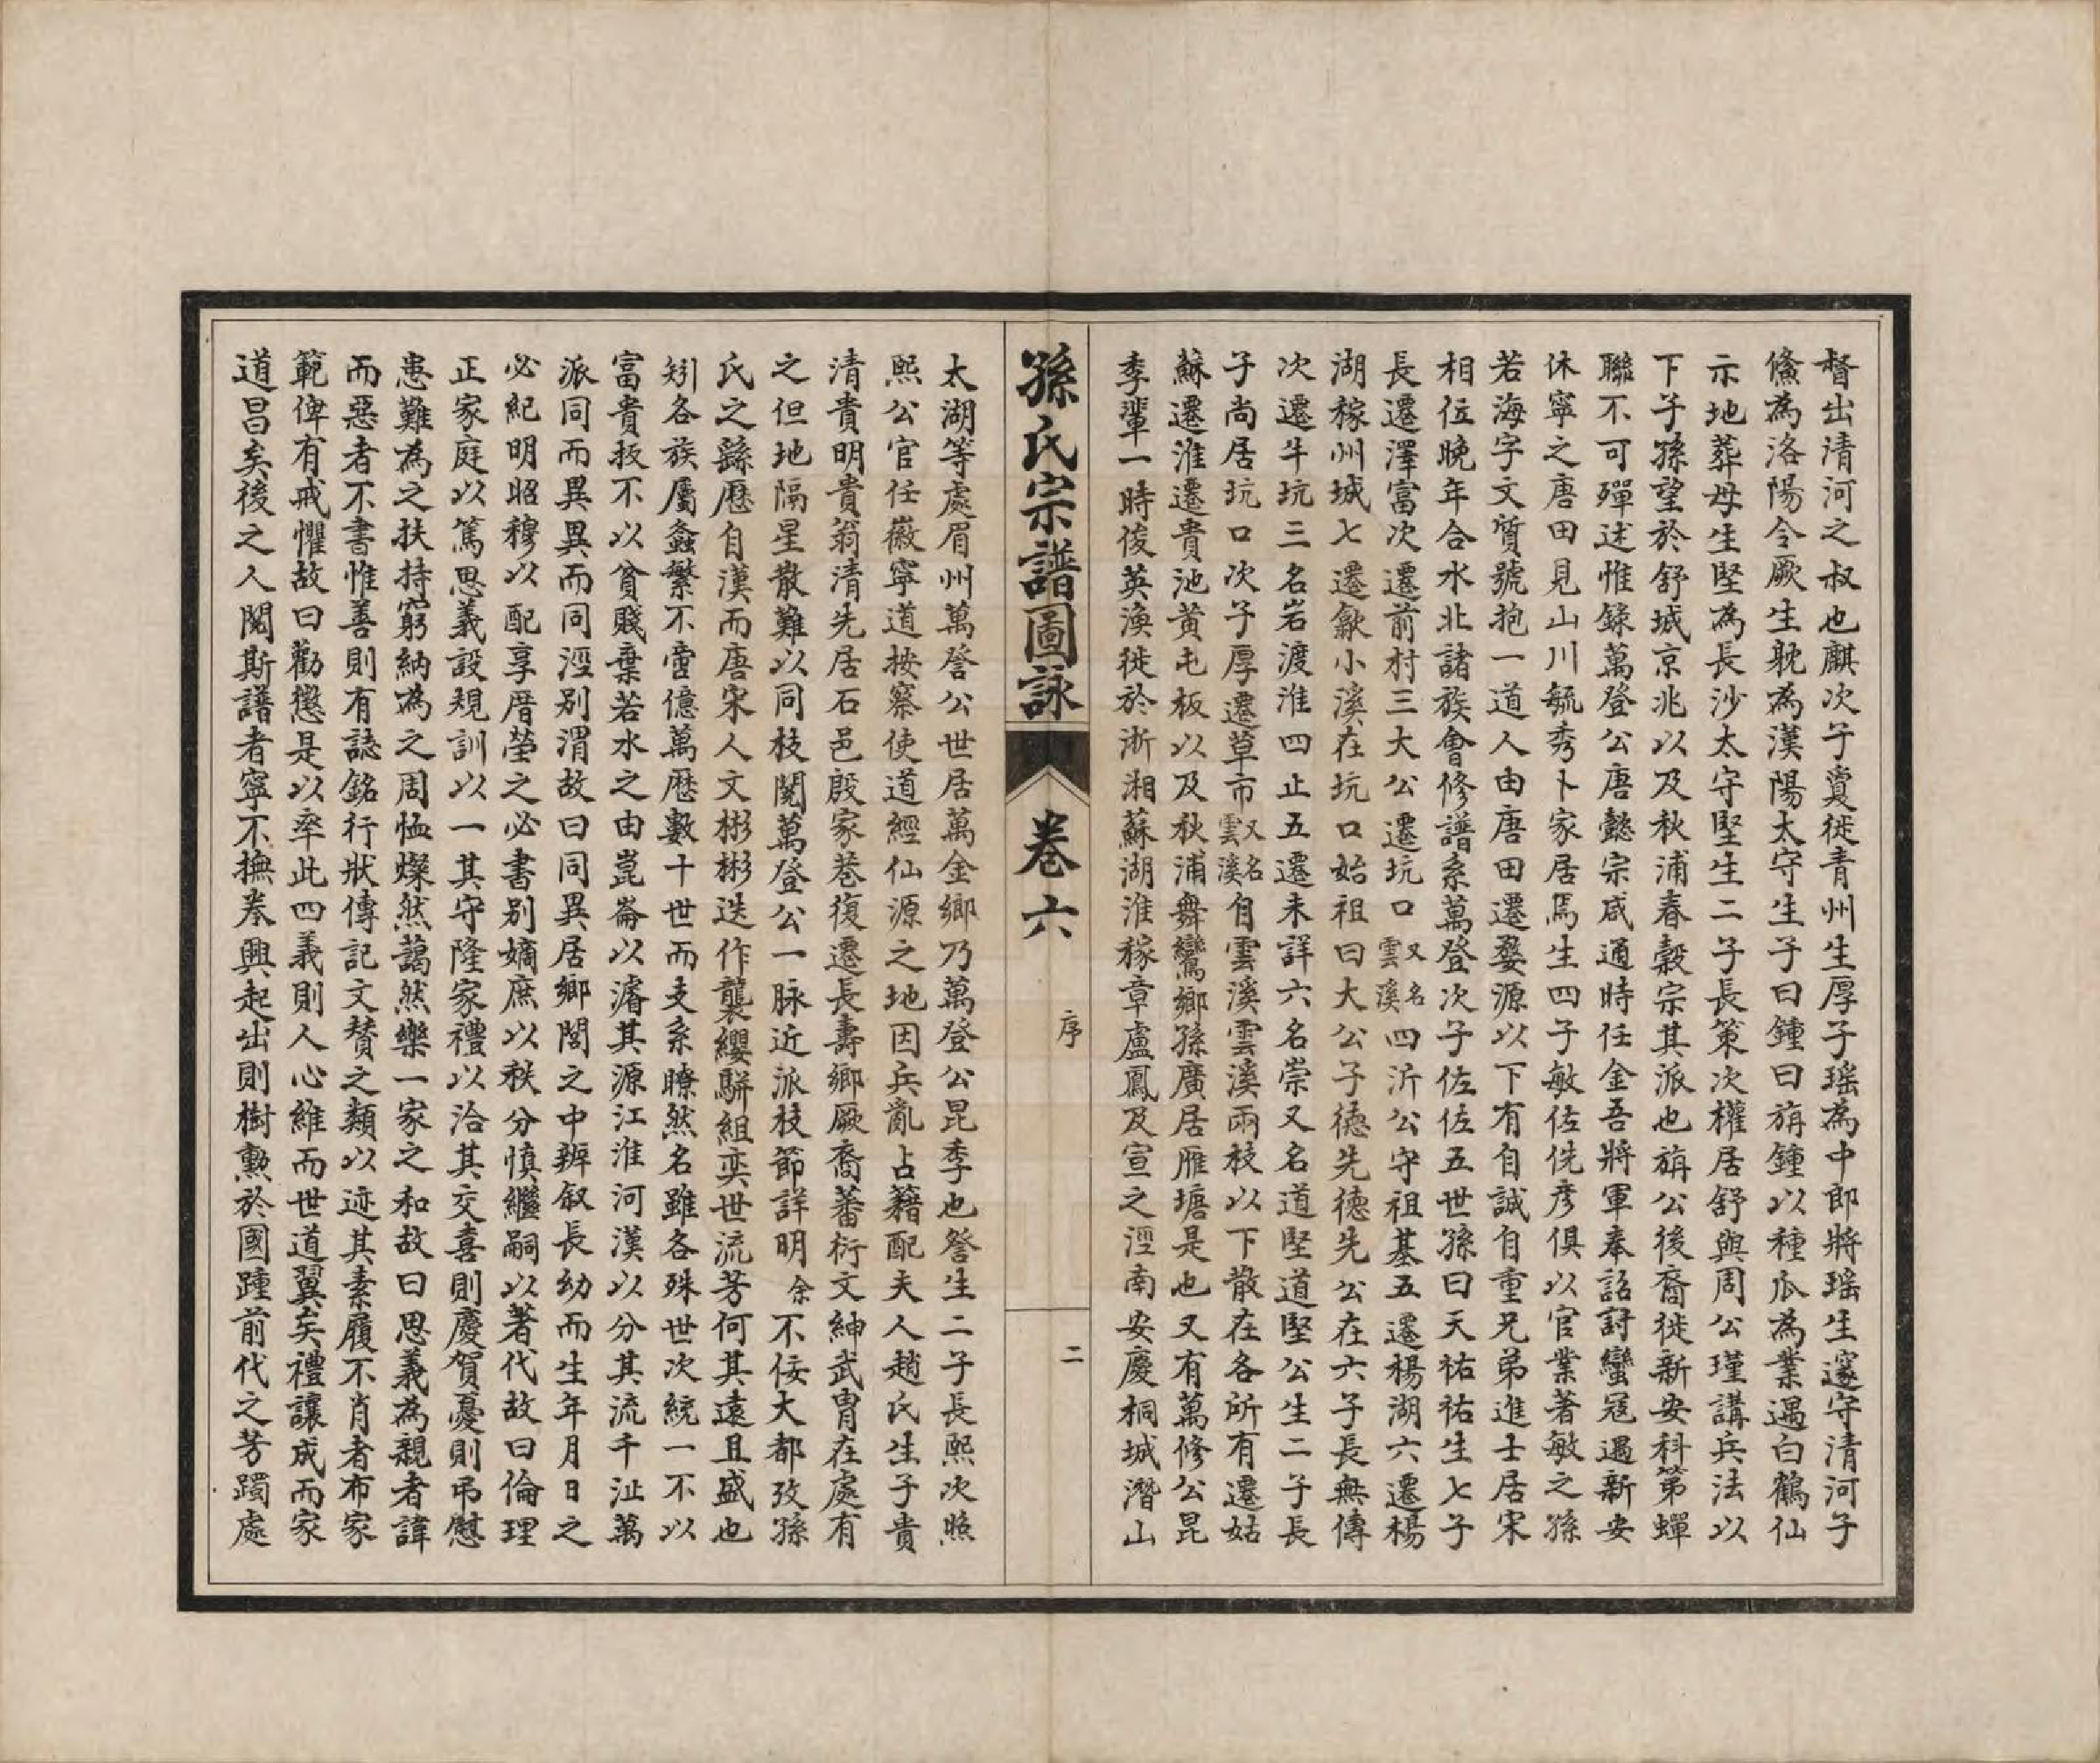 督出清河之叔也麒次子賔徙青州生厚子瑤為中郎將瑤生邃守清河子
儵為洛陽令厥生躭為漢陽太守生子曰鍾曰旃鍾以種瓜為業遇白鶴仙
示地葬母生堅為長沙太守堅生二子長策次權居舒與周公瑾講兵法以
下子孫望於舒城京兆以及秋浦春榖宗其派也旃公後裔徙新安科第蟬
聯不可殫述惟錄萬登公唐懿宗咸通時任金吾將軍奉詔討蠻冦遇新安
休寧之唐田見山川毓秀卜家居焉生四子敏佐侁彦俱以官業著敏之孫
若海字文質號抱一道人由唐田遷婺源以下有自誠自重兄弟進士居宋
相位晚年合水北諸族會修譜系萬登次子佐佐五世孫曰天祐祐生七子
長遷澤富次遷前村三大公遷坑口又名雲溪四沂公守祖基五遷楊湖六遷楊
湖稼州城七遷歙小溪在坑口始祖曰大公子德先德先公在六子長無傳
次遷牛坑三名岩渡淮四止五遷未詳六名崇又名道堅道堅公生二子長
子尚居坑口次子厚遷草市又名雲溪自雲溪雲溪兩枝以下散在各所有遷姑
蘇遷淮遷貴池黄屯板以及秋浦舞鸞鄉孫廣居雁塘是也又有萬修公昆
季輩一時俊英渙徙於浙湘蘇湖淮稼章盧鳳及宣之涇南安慶桐城潛山
孫氏宗譜圖詠 卷六 序 二
太湖等處眉州萬詧公世居萬金鄉乃萬登公昆季也詧生二子長熙次照
熙公官任徽寧道按察使道經仙源之地因兵亂占籍配夫人趙氏生子貴
清貴明貴翁清先居石邑殷家巷復遷長壽鄉厥裔蕃衍文紳武胄在處有
之但地隔星散難以同枝閱萬登公一脉近派枝節詳明余不佞大都攷孫
氏之繇厯自漢而唐宋人文彬彬迭作襲纓駢組奕世流芳何其遠且盛也
矧各族屬螽繁不啻億萬厯數十世而支系瞭然名雖各殊世次統一不以
富貴扳不以貧賤棄若水之由崑崙以濬其源江淮河漢以分其流千沚萬
派同而異異而同涇别渭故曰同異居鄉閭之中辨叙長幼而生年月日之
必紀明昭穆以配享厝塋之必書别嫡庶以秩分慎繼嗣以著代故曰倫理
正家庭以篤思義設規訓以一其守隆家禮以洽其交喜則慶賀憂則弔慰
患難為之扶持窮納為之周恤燦然藹然樂一家之和故曰思義為親者諱
而惡者不書惟善則有誌銘行狀傳記文贊之類以迹其素履不肖者布家
範俾有戒懼故曰勸懲是以率此四義則人心維而世道翼矣禮讓成而家
道昌矣後之人閱斯譜者寧不撫卷興起出則樹勲於國踵前代之芳躅處